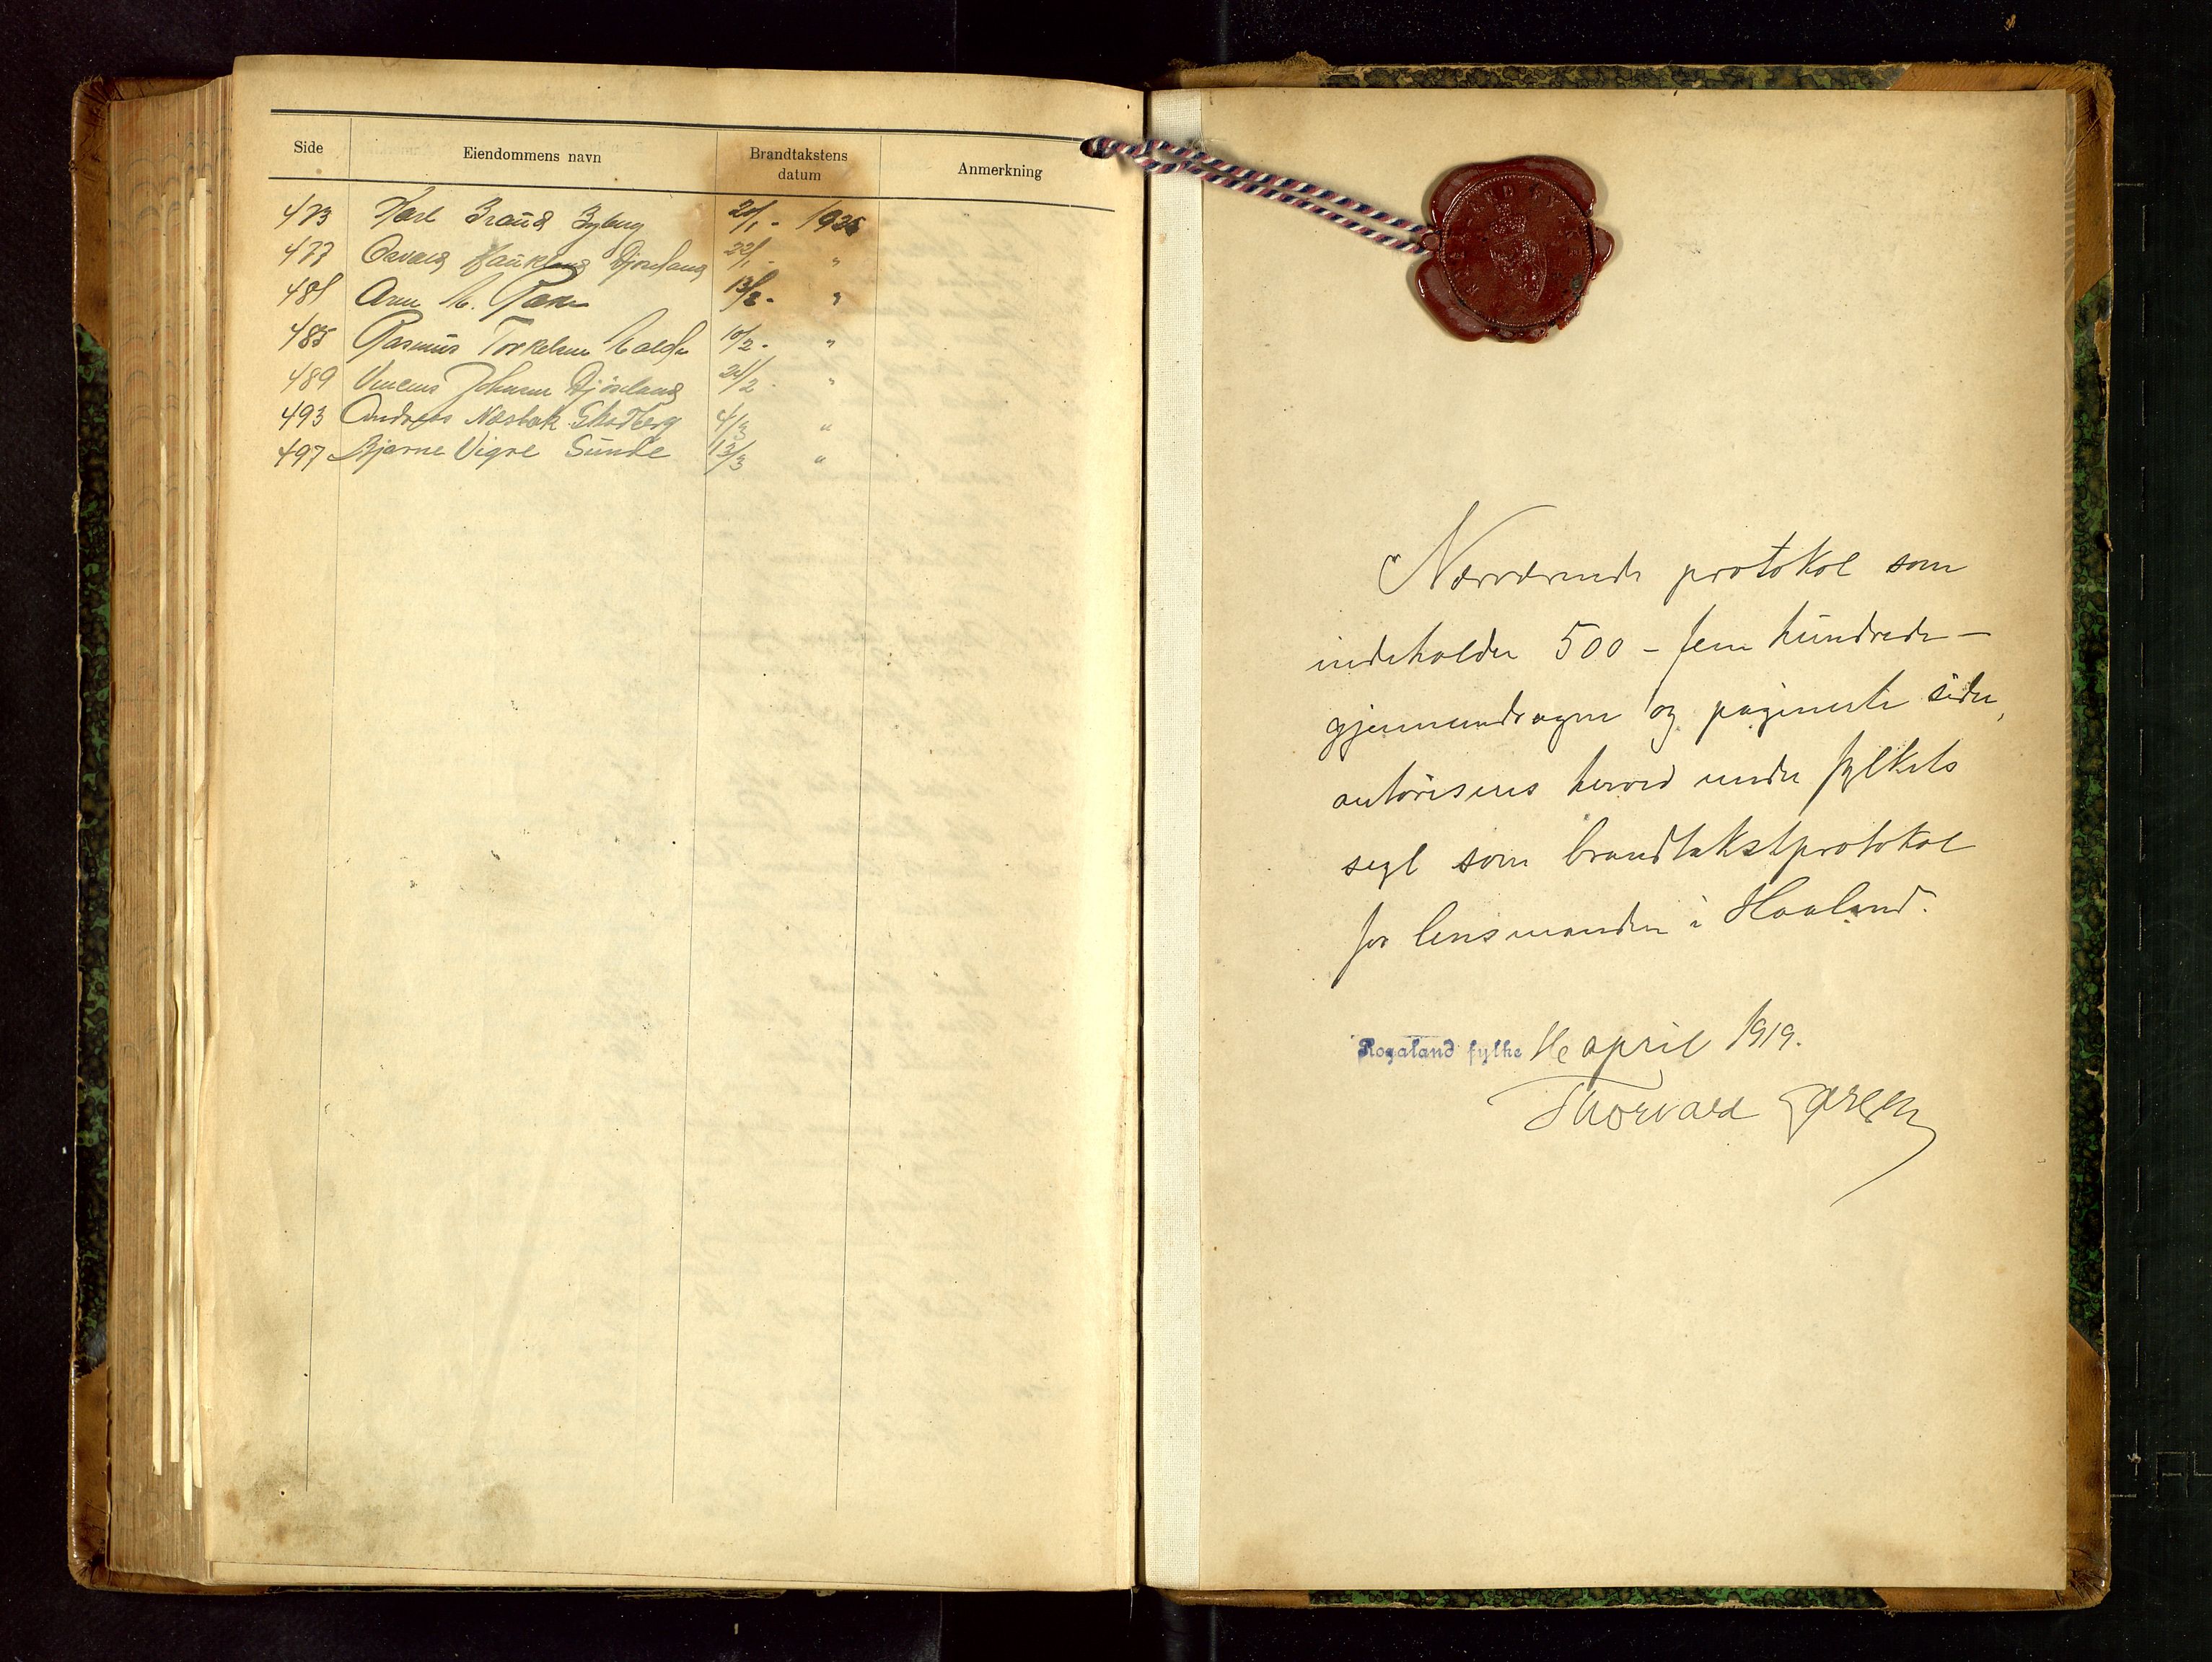 Side Eiendommens navn Brandtakstens datum Anmerkning
473 Karl 20/1 - 1925
477 Osvald Haukland Djøseland 22/1 - "
481 Arne 13/2 - "
485 Rasmus Torkelsen 10/2 - "
489 Johnsen Djøseland 24/2 - "
493 Andreas Næsbøk Skadberg 4/3 "
497 Bjarne Vigre Sunde 13/3 "
Nærværende protokol som
indeholder 500 - fem hundrede -
gjennemdragne og paginerte sider,
autoriseres herved under fylkets
segl som brandtakstprotokol
for lensmanden i Haaland.
Rogaland fylke april 1919.
Thorvald
ROGALAND FYLKE